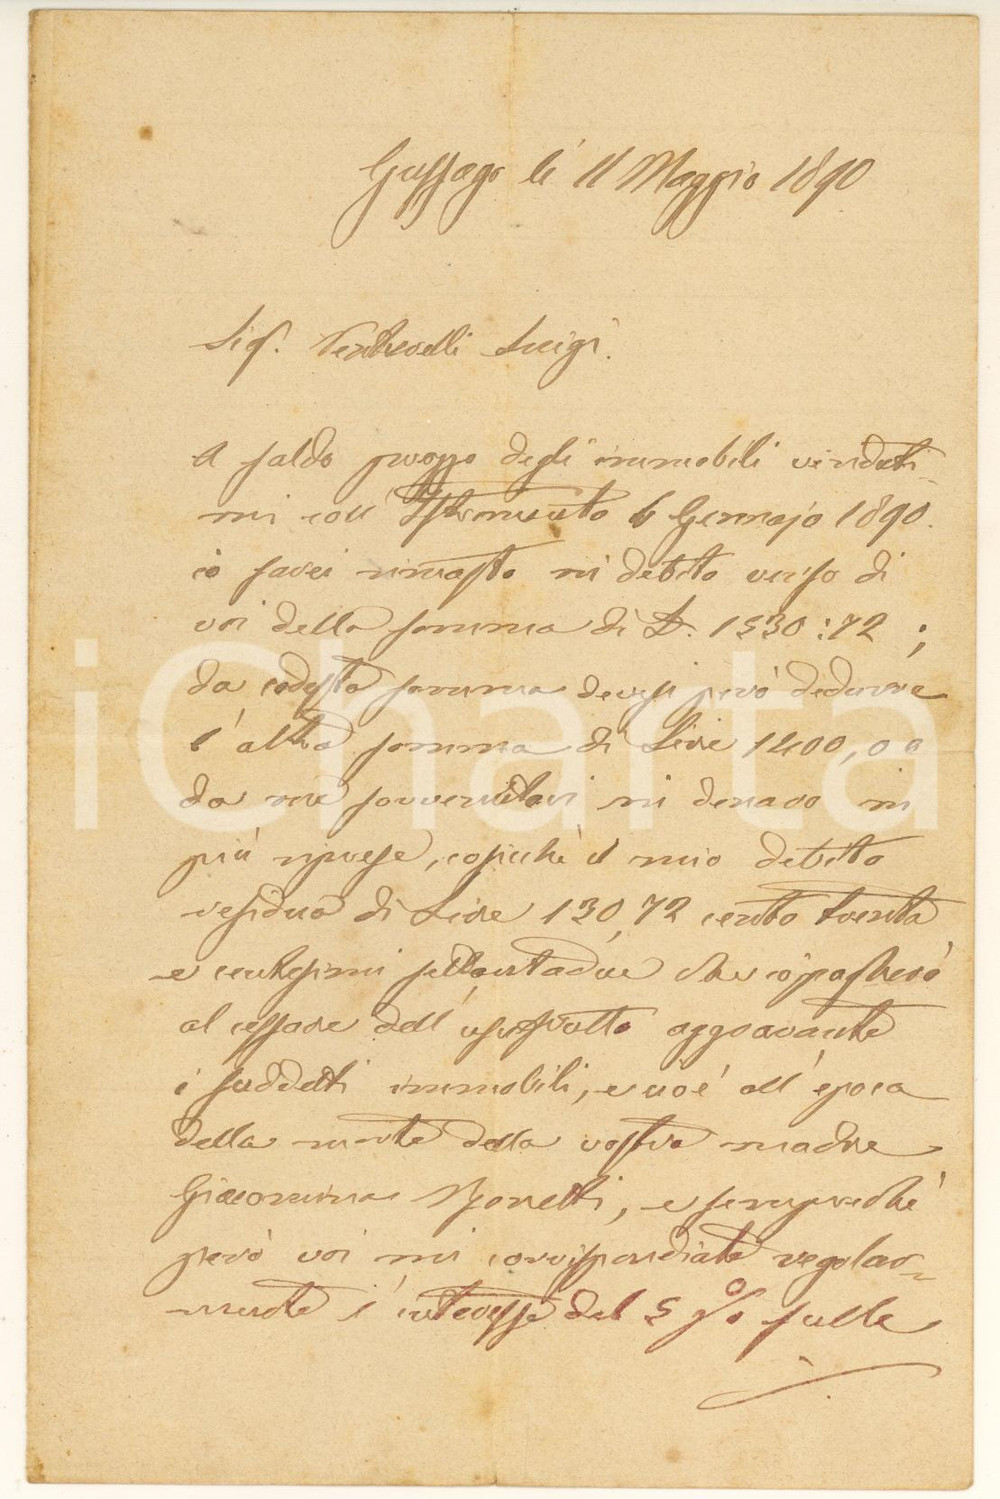 Gussago li 11 Maggio 1890
Sig. Luigi.
A saldo prezzo degli immobili venduti-
mi coll' Istromento 6 Gennajo 1890.
io sarei rimasto in debito verso di
voi della somma di L. 1530:72;
da codesta somma devesi però dedurre
l'altra somma di Lire 1400,00
da me sovvenutavi in denaro in
più riprese, cosicchè il mio debito
residua di Lire 130,72 cento trenta
e centesimi settantadue che io pagherò
al cessare dell'usufrutto aggravante
i suddetti immobili, e cioè all'epoca
della morte della vostra madre
Giacomina, e semprechè
però voi mi corrispondiate regolar-
mente l'interesse del 5 % sulle
iCharta